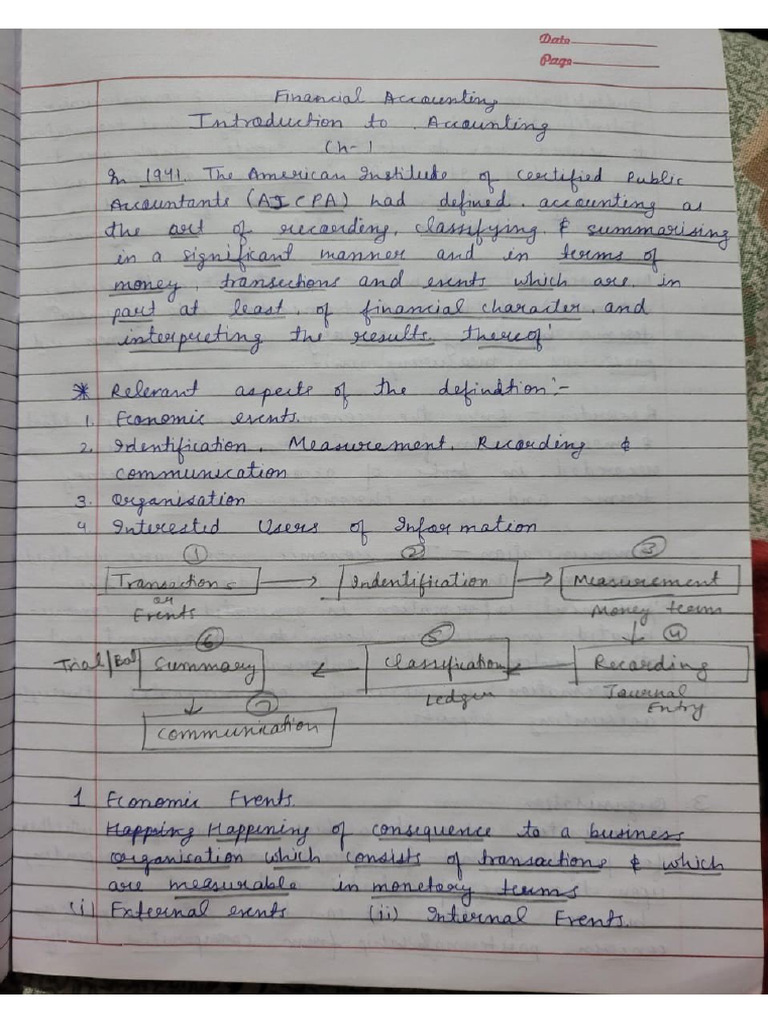 Date
Page
Financial Accounting
Introduction to Accounting
Ch-1
In 1941. The American Institude of certified Public
Accountants (AICPA) had defined. accounting as
the art of recording, classifying & summarising
in a significant manner and in terms of
money, transections and events which are, in
part at least, of financial character, and
interpreting the results, thereof'
* Relerant aspects of the defination:-
1. Economic events.
2. Identification, Measurement, Recording &
communication
3. Organisation
4. Interested Users of Information
1 2 3
Transactions Indentification Measurement
or Events Money terms
6 5 4
Trial/Bal Summary Classification Recording
Ledger Journal Entry
7
Communication
1 Economic Events.
Happing Happining of consequence to a business
organisation which consists of transactions & which
are measurable in monetory terms
(i) External events (ii) Internal Events.